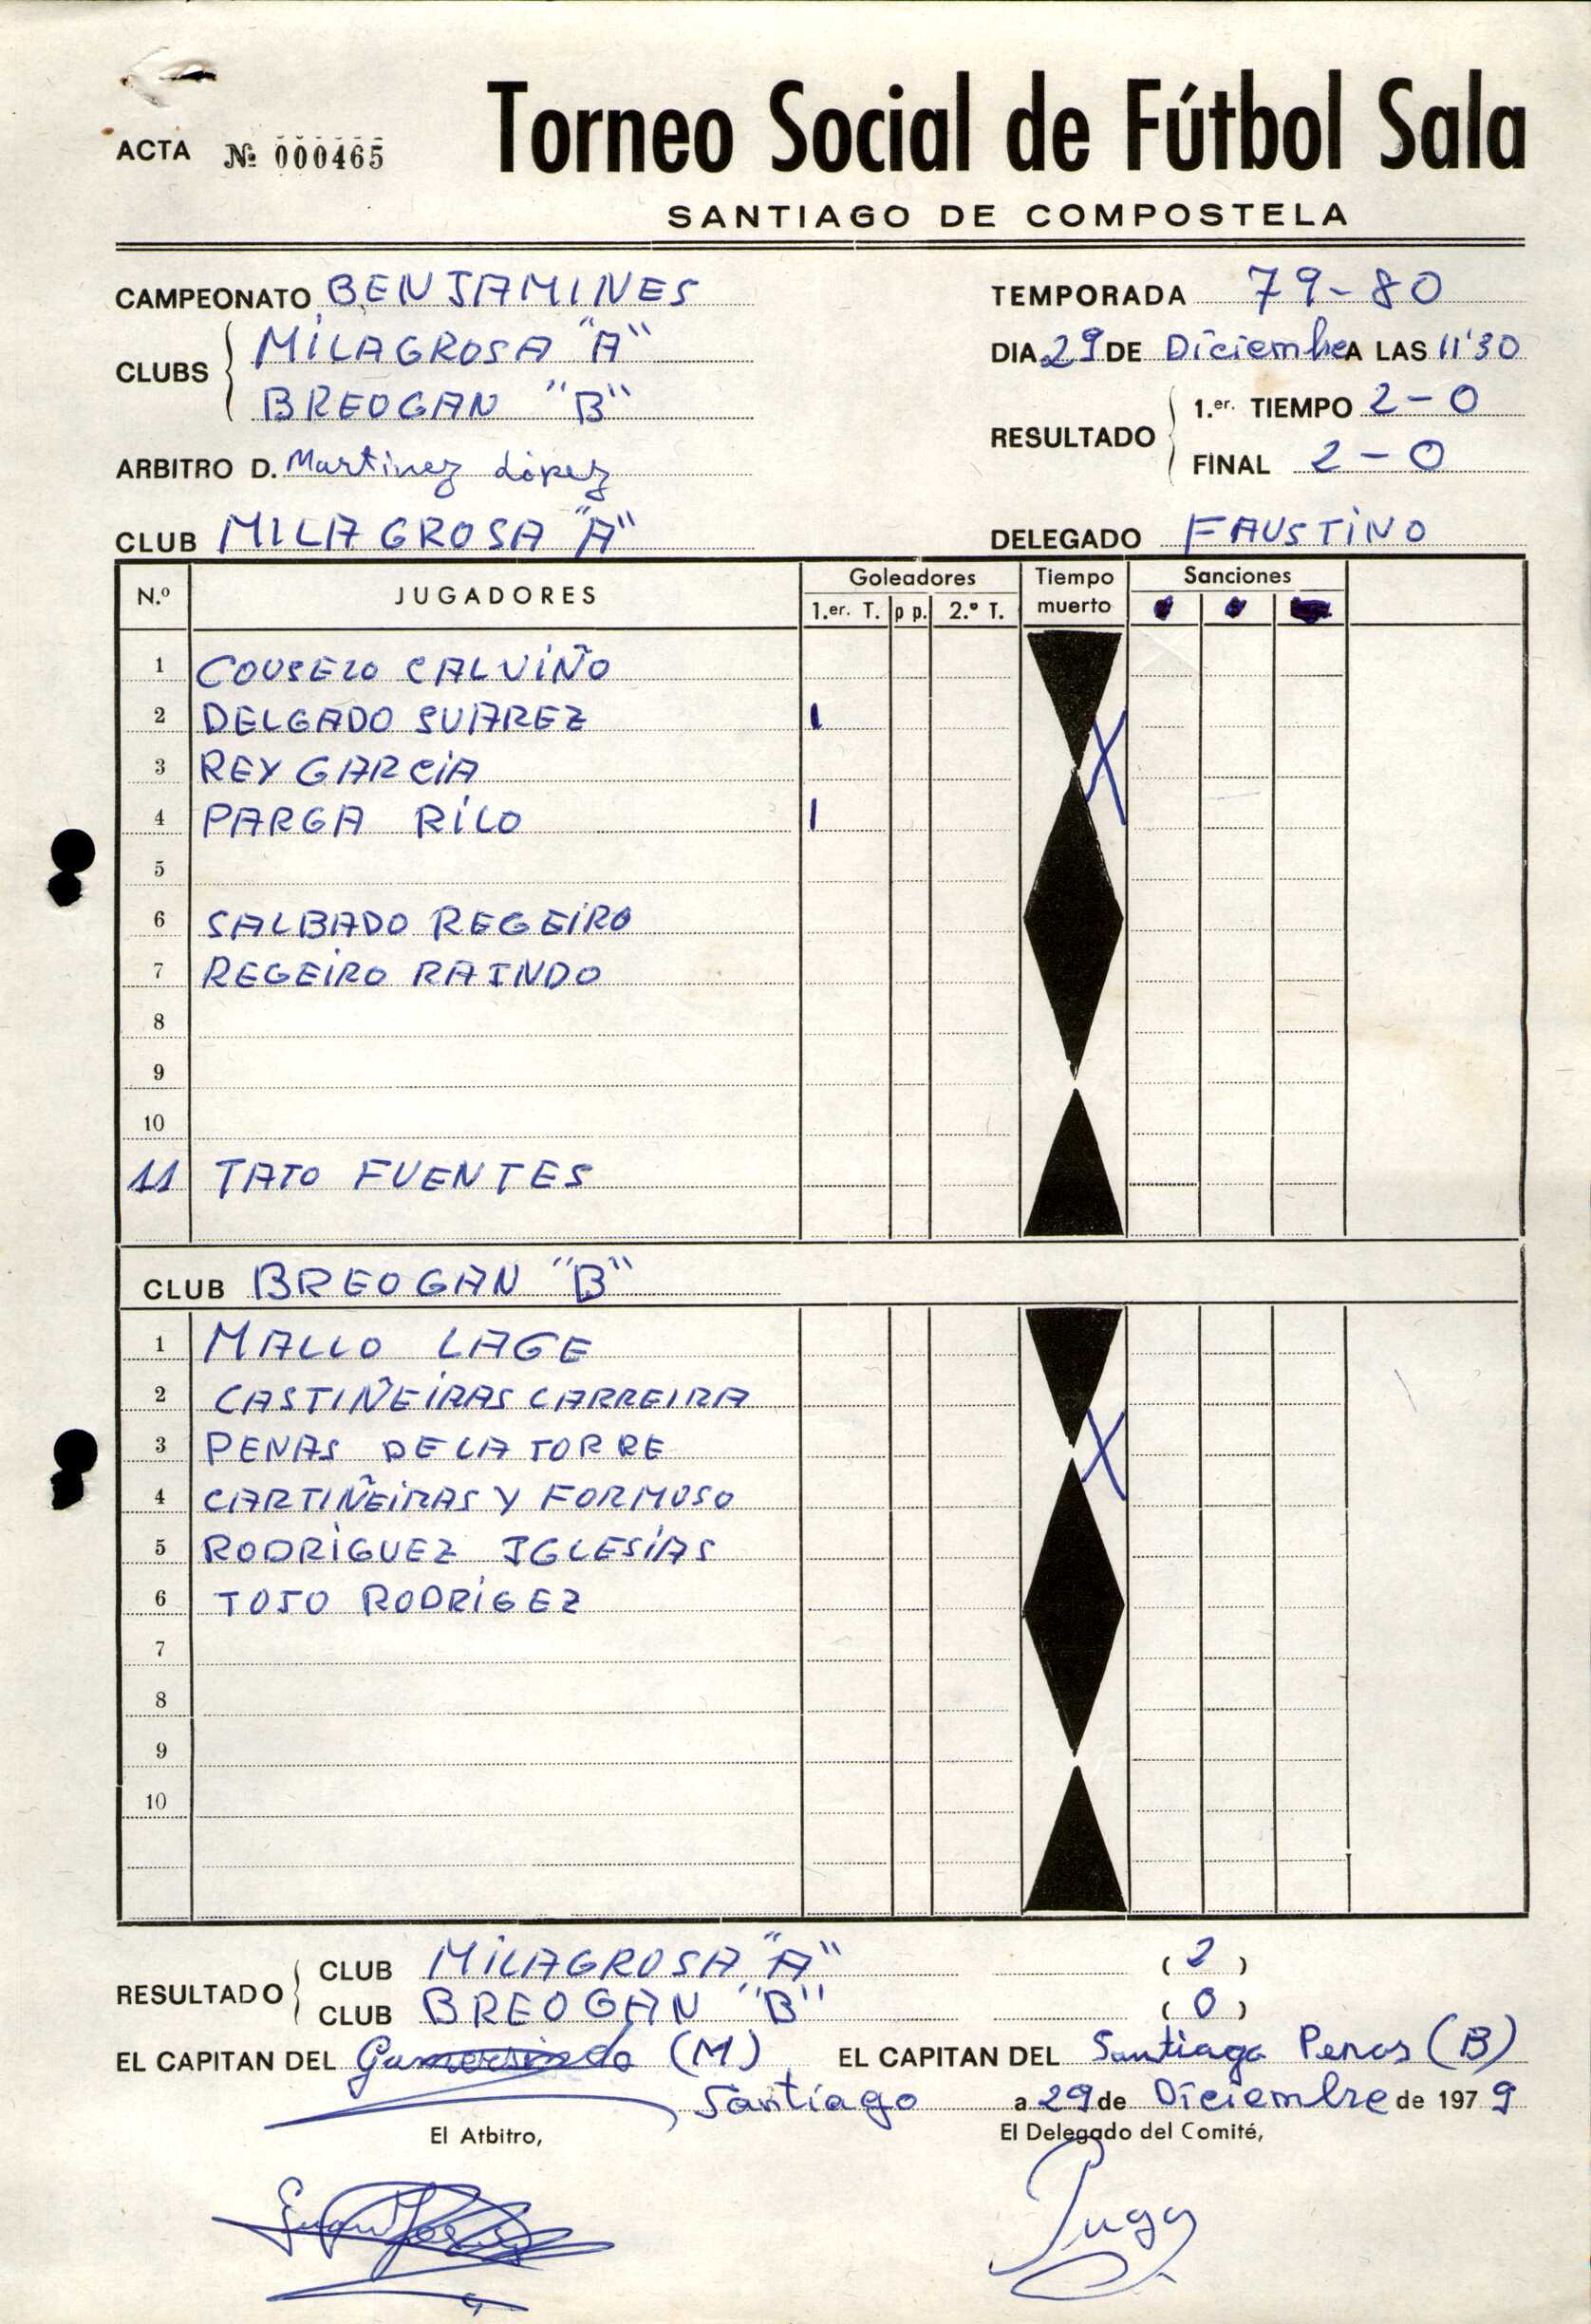 ACTA Nº 000465
Torneo Social de Fútbol Sala
SANTIAGO DE COMPOSTELA
CAMPEONATO BENJAMINES
TEMPORADA 79-80
CLUBS MILAGROSA "A"
BREOGAN "B"
DIA 29 DE Diciembre A LAS 11'30
RESULTADO 1.er. TIEMPO 2-0
FINAL 2-0
ARBITRO D. Martinez López
CLUB MILAGROSA "A"
DELEGADO FAUSTINO
N.º JUGADORES Goleadores Tiempo muerto Sanciones
1.er. T. p p. 2.º T.
1 COUSELO CALVIÑO
2 DELGADO SUAREZ 1
3 REY GARCIA X
4 PARGA RILO 1
5
6 SALBADO REGEIRO
7 REGEIRO RAINDO
8
9
10
11 TATO FUENTES
CLUB BREOGAN "B"
1 MALLO LAGE
2 CASTIÑEIRAS CARREIRA
3 PENAS DE LA TORRE X
4 CARTIÑEIRAS Y FORMOSO
5 RODRIGUEZ IGLESIAS
6 TOJO RODRIGEZ
7
8
9
10
RESULTADO CLUB MILAGROSA "A" (2)
CLUB BREOGAN "B" (0)
EL CAPITAN DEL (M) EL CAPITAN DEL Santiago Penas (B)
Santiago a 29 de Diciembre de 1979
El Atbitro,
El Delegado del Comité,